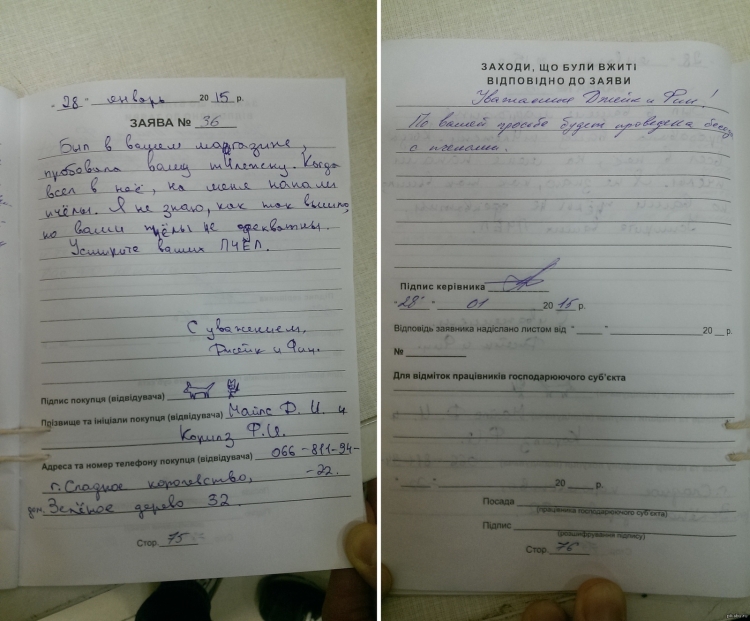 "28" январь 2015 р.
ЗАЯВА № 36
Был в вашем магазине,
пробовала вашу тележку. Когда
всел в неё, на меня напали
пчёлы. Я не знаю, как так вышло,
но ваши пчёлы не адекватны.
Усмирите ваших ПЧЁЛ.
С уважением,
Джейк и Фин.
Підпис покупця (відвідувача)
Прізвище та ініціали покупця (відвідувача) Майлс Д. И. и
Ф.И.
Адреса та номер телефону покупця (відвідувача) 066-811-94-
-22.
г. Сладкое королевство,
дом. Зелёное дерево 32.
Стор. 75
ЗАХОДИ, ЩО БУЛИ ВЖИТІ
ВІДПОВІДНО ДО ЗАЯВИ
Уважаемые Джейк и Фин!
По вашей просьбе будет проведена беседа
с пчелами.
Підпис керівника
"28" 01 2015 р.
Відповідь заявника надіслано листом від " " 20 р.
№
Для відміток працівників господарюючого суб'єкта
" " 20 р.
Посада
(працівника господарюючого суб'єкта)
Підпис
(розшифрування підпису)
Стор. 76